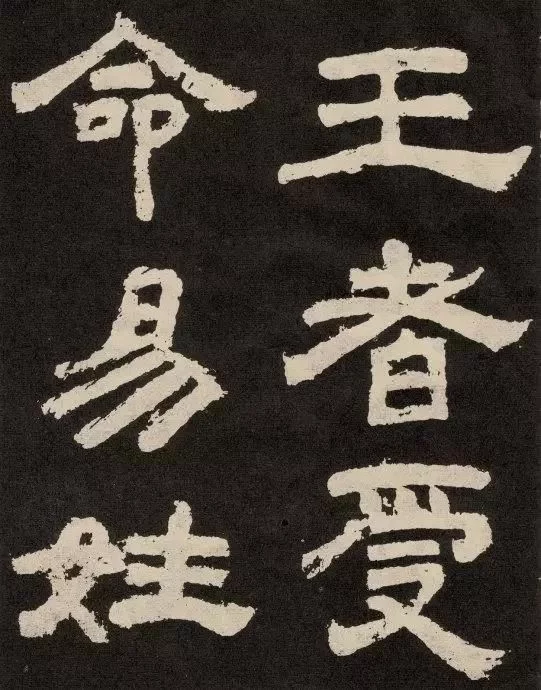 王者受
命易姓